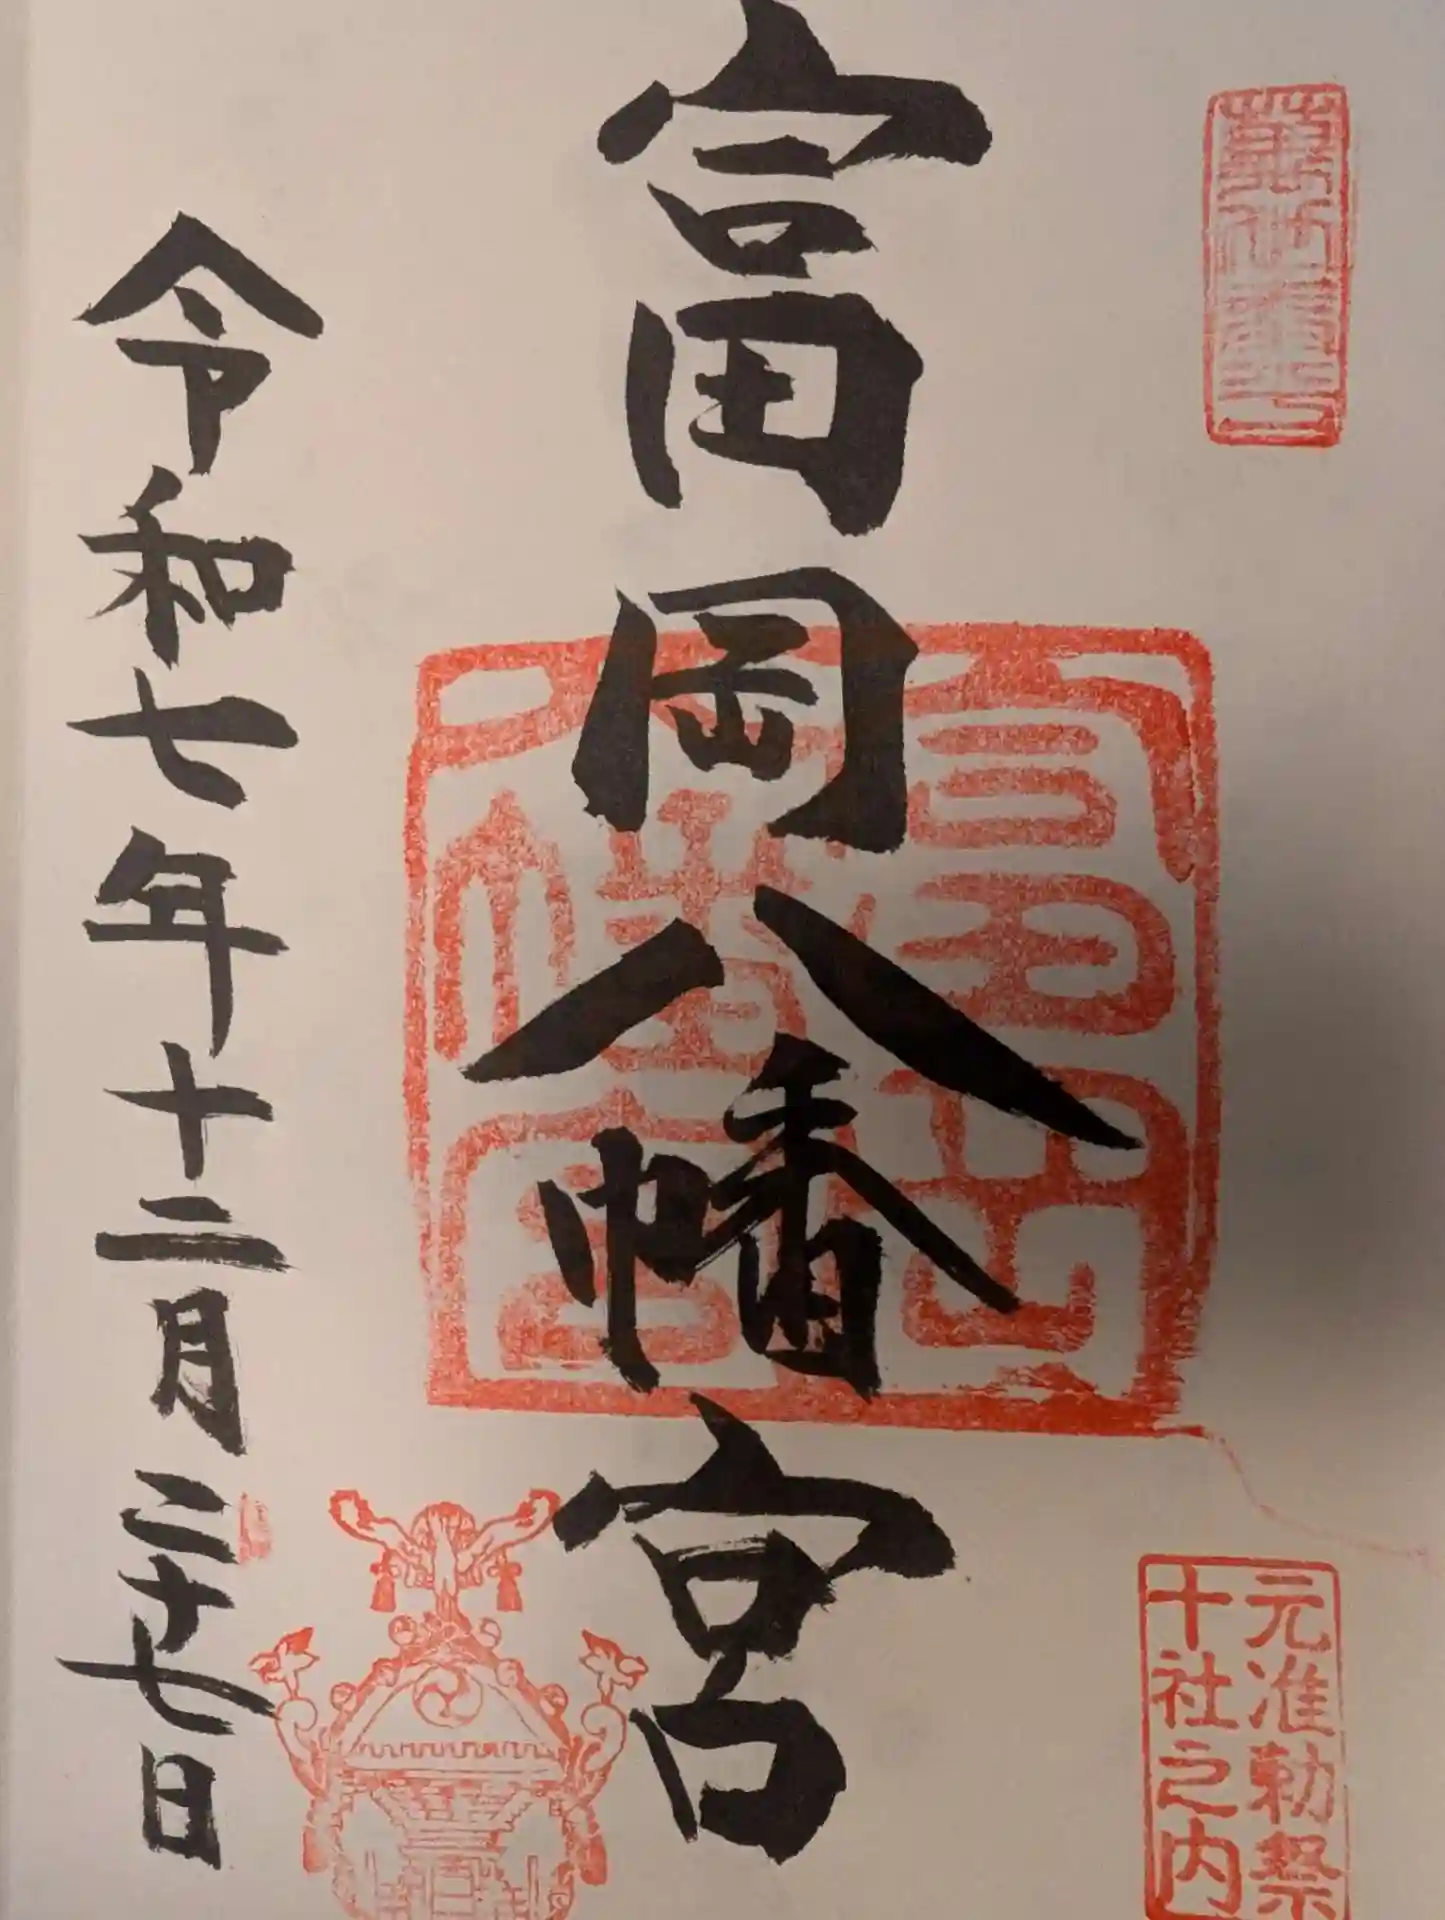 元准勅祭
十社之内
富岡八幡宮
富岡
八幡宮
令和七年十二月二十七日